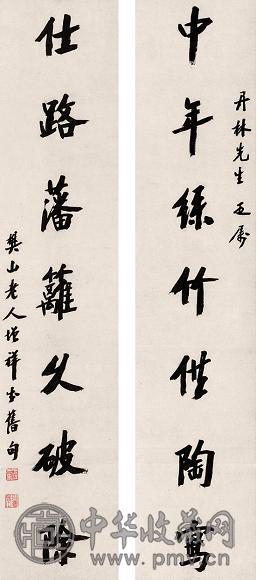 中年絲竹供陶寫
丹林先生正屬
仕路藩籬久破除
樊山老人增祥書舊句
中华收藏网
www.pmv.cn